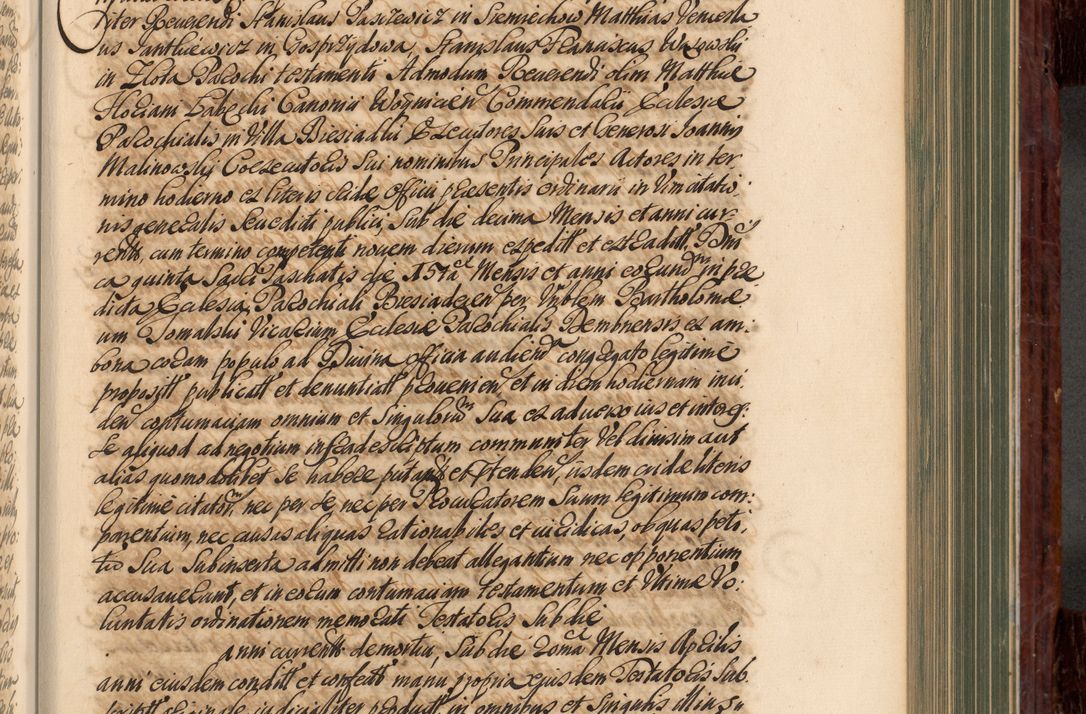 iter Reverendi Stanislaus Paszewicz in Siemiechow, Matthias Vencesla
us Janthiewicz in Gosprzydowa, Stanislaus Franciscus
in Zlota Parochi testamenti Admodum Reverendi olim Matthiæ
Floriani Canonici Woynicien Commendarii Ecclesiæ
Parochialis in Villa Biesiadki Executores Suis et Generosi Joannis
Malinowskij Coexecutoris Sui nominibus Principales Actores in ter
mino hodierno ex literis cridæ officii præsentis ordinarii in Vim citatio
nis generalis sev edicti publici, Sub die decima Mensis et anni cur
rentt, cum termino competenti novem dierum expeditt et extraditt, Dni
ca quinta Sacri Paschatis die 15ta Mensis et anni eorund in præ
dicta Ecclesia Parochiali Biesiadecen per Vnblem Bartholomæ
um Tomalski Vicarium Ecclesiæ Parochialis Dembnensis ex am:
bona coram populo ad Divina officia audiend congregato legitime
propositt publicatt et denunciatt provenien, et in diem hodiernam inci
den contumaciam omnium et Singulorum Sua ex adverso ius et interes:
se aliquod ad negotium infradescriptum communiter Vel divisim aut
alias quomodolibet se habere putant et Prtenden, iisdem cridæ literis
legitime citator, nec per se, nec per Procuratorem Suum legitimum com:
parentium, nec causas aliquas rationabiles et iuridicas, ob quas peti:
tio Sua Subinserta admitti non debeat allegantium nec opponentium
accusaverunt, et in eorum contumaciam testamentum et Ultimæ Vo:
luntatis ordinationem memorati Testatoris Sub die
anni currentt demortui, Sub die 20ma Mensis Aprilis
anni eiusdem conditt et confectt manu propria ejusdem Testatoris Sub